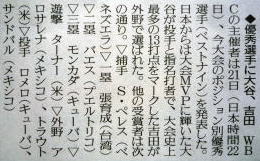 ◆優秀選手に大谷、吉田　ＷＢ
Ｃの主催者は21日（日本時間22
日）、今大会のポジション別優秀
選手（ベストナイン）を発表した。
日本からは大会ＭＶＰに輝いた大
谷が投手と指名打者で、大会史上
最多の13打点をマークした吉田が
外野で選ばれた。他の受賞者は次
の通り。▽捕手　Ｓ・ペレス（ベ
ネズエラ）▽一塁　張育成（台湾）
▽二塁　バエス（プエルトリコ）
▽三塁　モンカダ（キューバ）▽
遊撃　ターナー（米）▽外野　ア
ロサレナ（メキシコ）、トラウト
（米）▽投手　ロメロ（キューバ）、
サンドバル（メキシコ）